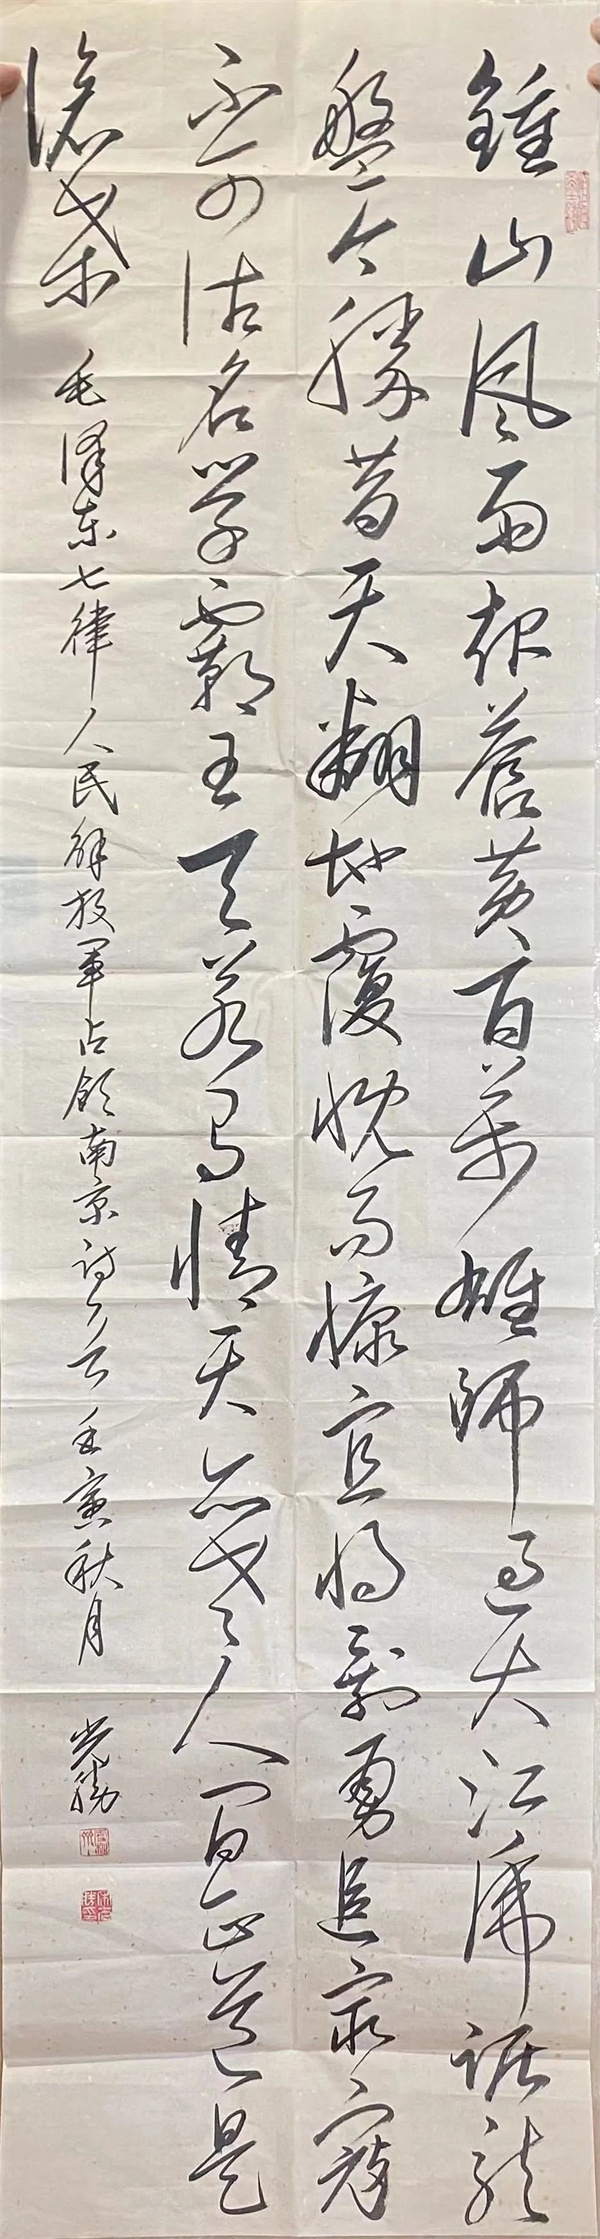 鍾山风雨起苍黄百万雄师过大江虎踞龙
盘今勝昔天翻地覆慨而慷宜将剩勇追穷寇
不可沽名学霸王天若有情天亦老人间正道是
滄桑
毛泽东七律人民解放军占领南京诗一首壬寅秋月
光勝